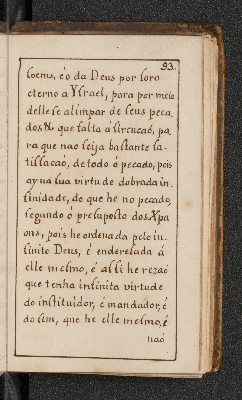 93.
soems, é o da Deus por foro
eterno a Ysrael, para por meio
delle se alimpar de seus peca
dos &c que falta á sircucaõ, pa
ra que naõ seija bastante sa-
tissacaõ, de todo ó pecado, pois
ay na sua virtude dobrada in-
finidade, do que he no pecado,
segundo ó presuposto dos Xpa
ons, pois he ordenada pelo in-
finito Deus, é enderesada á
elle mesmo, é assi he rezaõ
que tenha infinita virtude
do instituidor, é mandador, é
do fim, que he elle mesmo, é
naõ